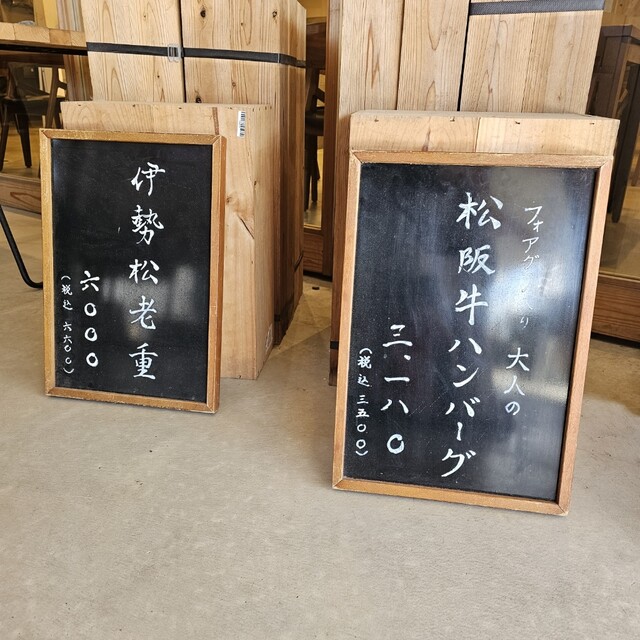 伊勢松老重
六〇〇〇
(税込 六六〇〇)
フォアグラ入り 大人の
松阪牛ハンバーグ
三、一八〇
(税込三五〇〇)